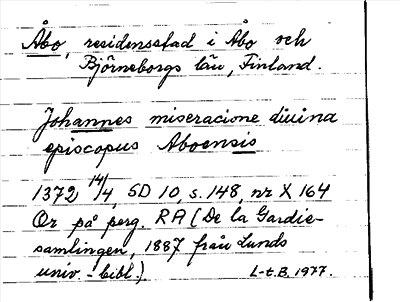 Åbo, residensstad i Åbo och
Björneborgs län, Finland.
Johannes miseracione diuina
episcopus Aboensis
1372 14/4, SD 10, s. 148, nr X 164
Or på perg. RA (De la Gardie-
samlingen, 1887 från Lunds
univ.-bibl.)
L-t.B. 1977.